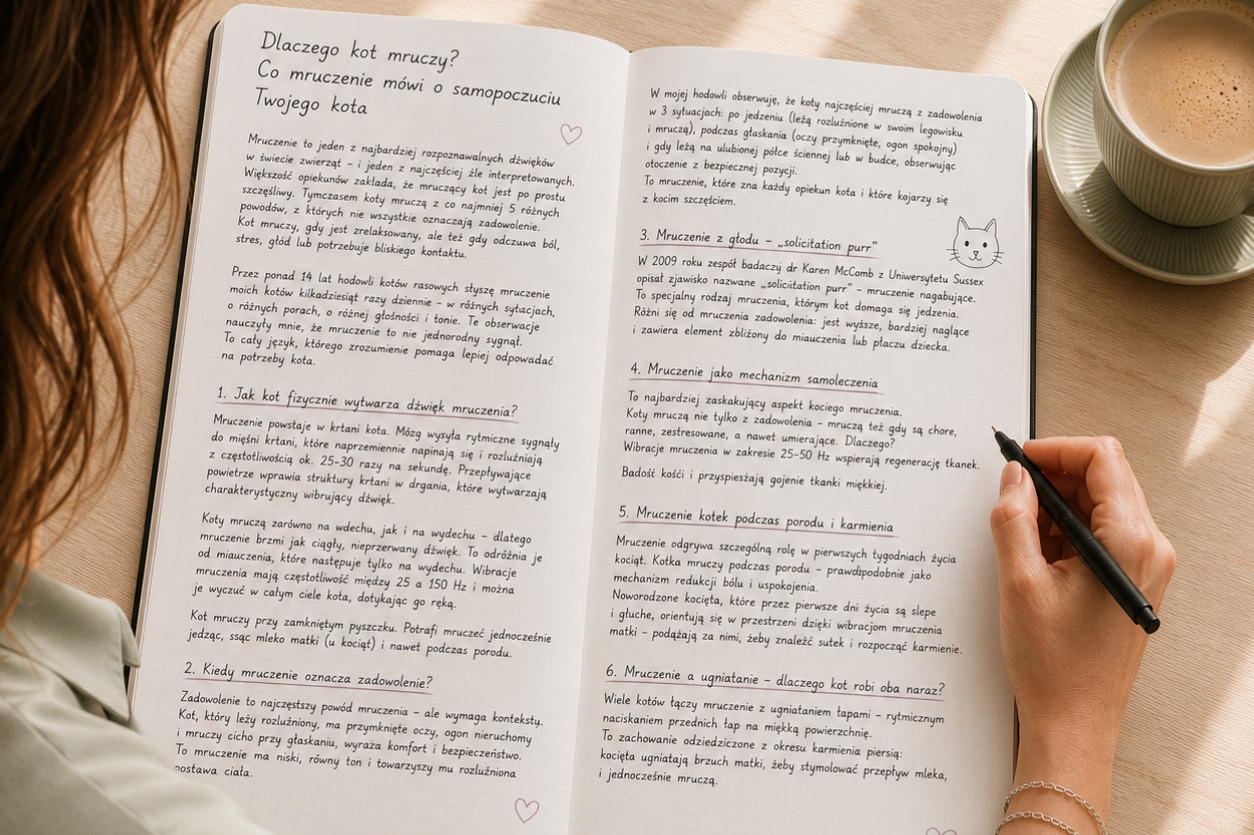 Dlaczego kot mruczy?
Co mruczenie mówi o samopoczuciu
Twojego kota
Mruczenie to jeden z najbardziej rozpoznawalnych dźwięków
w świecie zwierząt – i jeden z najczęściej źle interpretowanych.
Większość opiekunów zakłada, że mruczący kot jest po prostu
szczęśliwy. Tymczasem koty mruczą z co najmniej 5 różnych
powodów, z których nie wszystkie oznaczają zadowolenie.
Kot mruczy, gdy jest zrelaksowany, ale też gdy odczuwa ból,
stres, głód lub potrzebuje bliskiego kontaktu.
Przez ponad 14 lat hodowli kotów rasowych słyszę mruczenie
moich kotów kilkadziesiąt razy dziennie – w różnych sytuacjach,
o różnych porach, o różnej głośności i tonie. Te obserwacje
nauczyły mnie, że mruczenie to nie jednorodny sygnał.
To cały język, którego zrozumienie pomaga lepiej odpowiadać
na potrzeby kota.
1. Jak kot fizycznie wytwarza dźwięk mruczenia?
Mruczenie powstaje w krtani kota. Mózg wysyła rytmiczne sygnały
do mięśni krtani, które naprzemiennie napinają się i rozluźniają
z częstotliwością ok. 25-30 razy na sekundę. Przepływające
powietrze wprawia struktury krtani w drgania, które wytwarzają
charakterystyczny wibrujący dźwięk.
Koty mruczą zarówno na wdechu, jak i na wydechu – dlatego
mruczenie brzmi jak ciągły, nieprzerwany dźwięk. To odróżnia je
od miauczenia, które następuje tylko na wydechu. Wibracje
mruczenia mają częstotliwość między 25 a 150 Hz i można
je wyczuć w całym ciele kota, dotykając go ręką.
Kot mruczy przy zamkniętym pyszczku. Potrafi mruczeć jednocześnie
jedząc, ssąc mleko matki (u kociąt) i nawet podczas porodu.
2. Kiedy mruczenie oznacza zadowolenie?
Zadowolenie to najczęstszy powód mruczenia – ale wymaga kontekstu.
Kot, który leży rozluźniony, ma przymknięte oczy, ogon nieruchomy
i mruczy cicho przy głaskaniu, wyraża komfort i bezpieczeństwo.
To mruczenie ma niski, równy ton i towarzyszy mu rozluźniona
postawa ciała.
W mojej hodowli obserwuję, że koty najczęściej mruczą z zadowolenia
w 3 sytuacjach: po jedzeniu (leżą rozluźnione w swoim legowisku
i mruczą), podczas głaskania (oczy przymknięte, ogon spokojny)
i gdy leżą na ulubionej półce ściennej lub w budce, obserwując
otoczenie z bezpiecznej pozycji.
To mruczenie, które zna każdy opiekun kota i które kojarzy się
z kocim szczęściem.
3. Mruczenie z głodu – „solicitation purr”
W 2009 roku zespół badaczy dr Karen McComb z Uniwersytetu Sussex
opisał zjawisko nazwane „solicitation purr” – mruczenie nagabujące.
To specjalny rodzaj mruczenia, którym kot domaga się jedzenia.
Różni się od mruczenia zadowolenia: jest wyższe, bardziej naglące
i zawiera element zbliżony do miauczenia lub płaczu dziecka.
4. Mruczenie jako mechanizm samoleczenia
To najbardziej zaskakujący aspekt kociego mruczenia.
Koty mruczą nie tylko z zadowolenia – mruczą też gdy są chore,
ranne, zestresowane, a nawet umierające. Dlaczego?
Wibracje mruczenia w zakresie 25-50 Hz wspierają regenerację tkanek.
Badość kości i przyspieszają gojenie tkanki miękkiej.
5. Mruczenie kotek podczas porodu i karmienia
Mruczenie odgrywa szczególną rolę w pierwszych tygodniach życia
kociąt. Kotka mruczy podczas porodu – prawdopodobnie jako
mechanizm redukcji bólu i uspokojenia.
Noworodzone kocięta, które przez pierwsze dni życia są ślepe
i głuche, orientują się w przestrzeni dzięki wibracjom mruczenia
matki – podążają za nimi, żeby znaleźć sutek i rozpocząć karmienie.
6. Mruczenie a ugniatanie – dlaczego kot robi oba naraz?
Wiele kotów łączy mruczenie z ugniataniem łapami – rytmicznym
naciskaniem przednich łap na miękką powierzchnię.
To zachowanie odziedziczone z okresu karmienia piersią:
kocięta ugniatają brzuch matki, żeby stymulować przepływ mleka,
i jednocześnie mruczą.